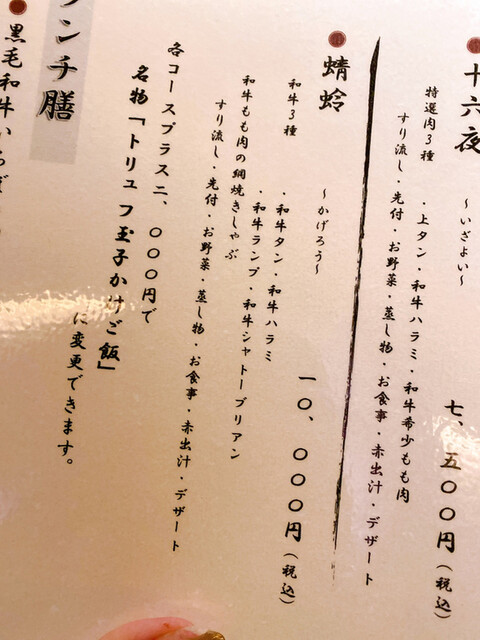 十六夜
〜いざよい〜
七、五〇〇円(税込)
特選肉3種
・上タン・和牛ハラミ・和牛希少もも肉
すり流し・先付・お野菜・蒸し物・お食事・赤出汁・デザート
蜻蛉
〜かげろう〜
一〇、〇〇〇円(税込)
和牛3種
・和牛タン・和牛ハラミ
・和牛ランプ・和牛シャトーブリアン
和牛もも肉の網焼きしゃぶ
すり流し・先付・お野菜・蒸し物・お食事・赤出汁・デザート
各コースプラス二、〇〇〇円で
名物「トリュフ玉子かけご飯」
に変更できます。
ンチ膳
黒毛和牛